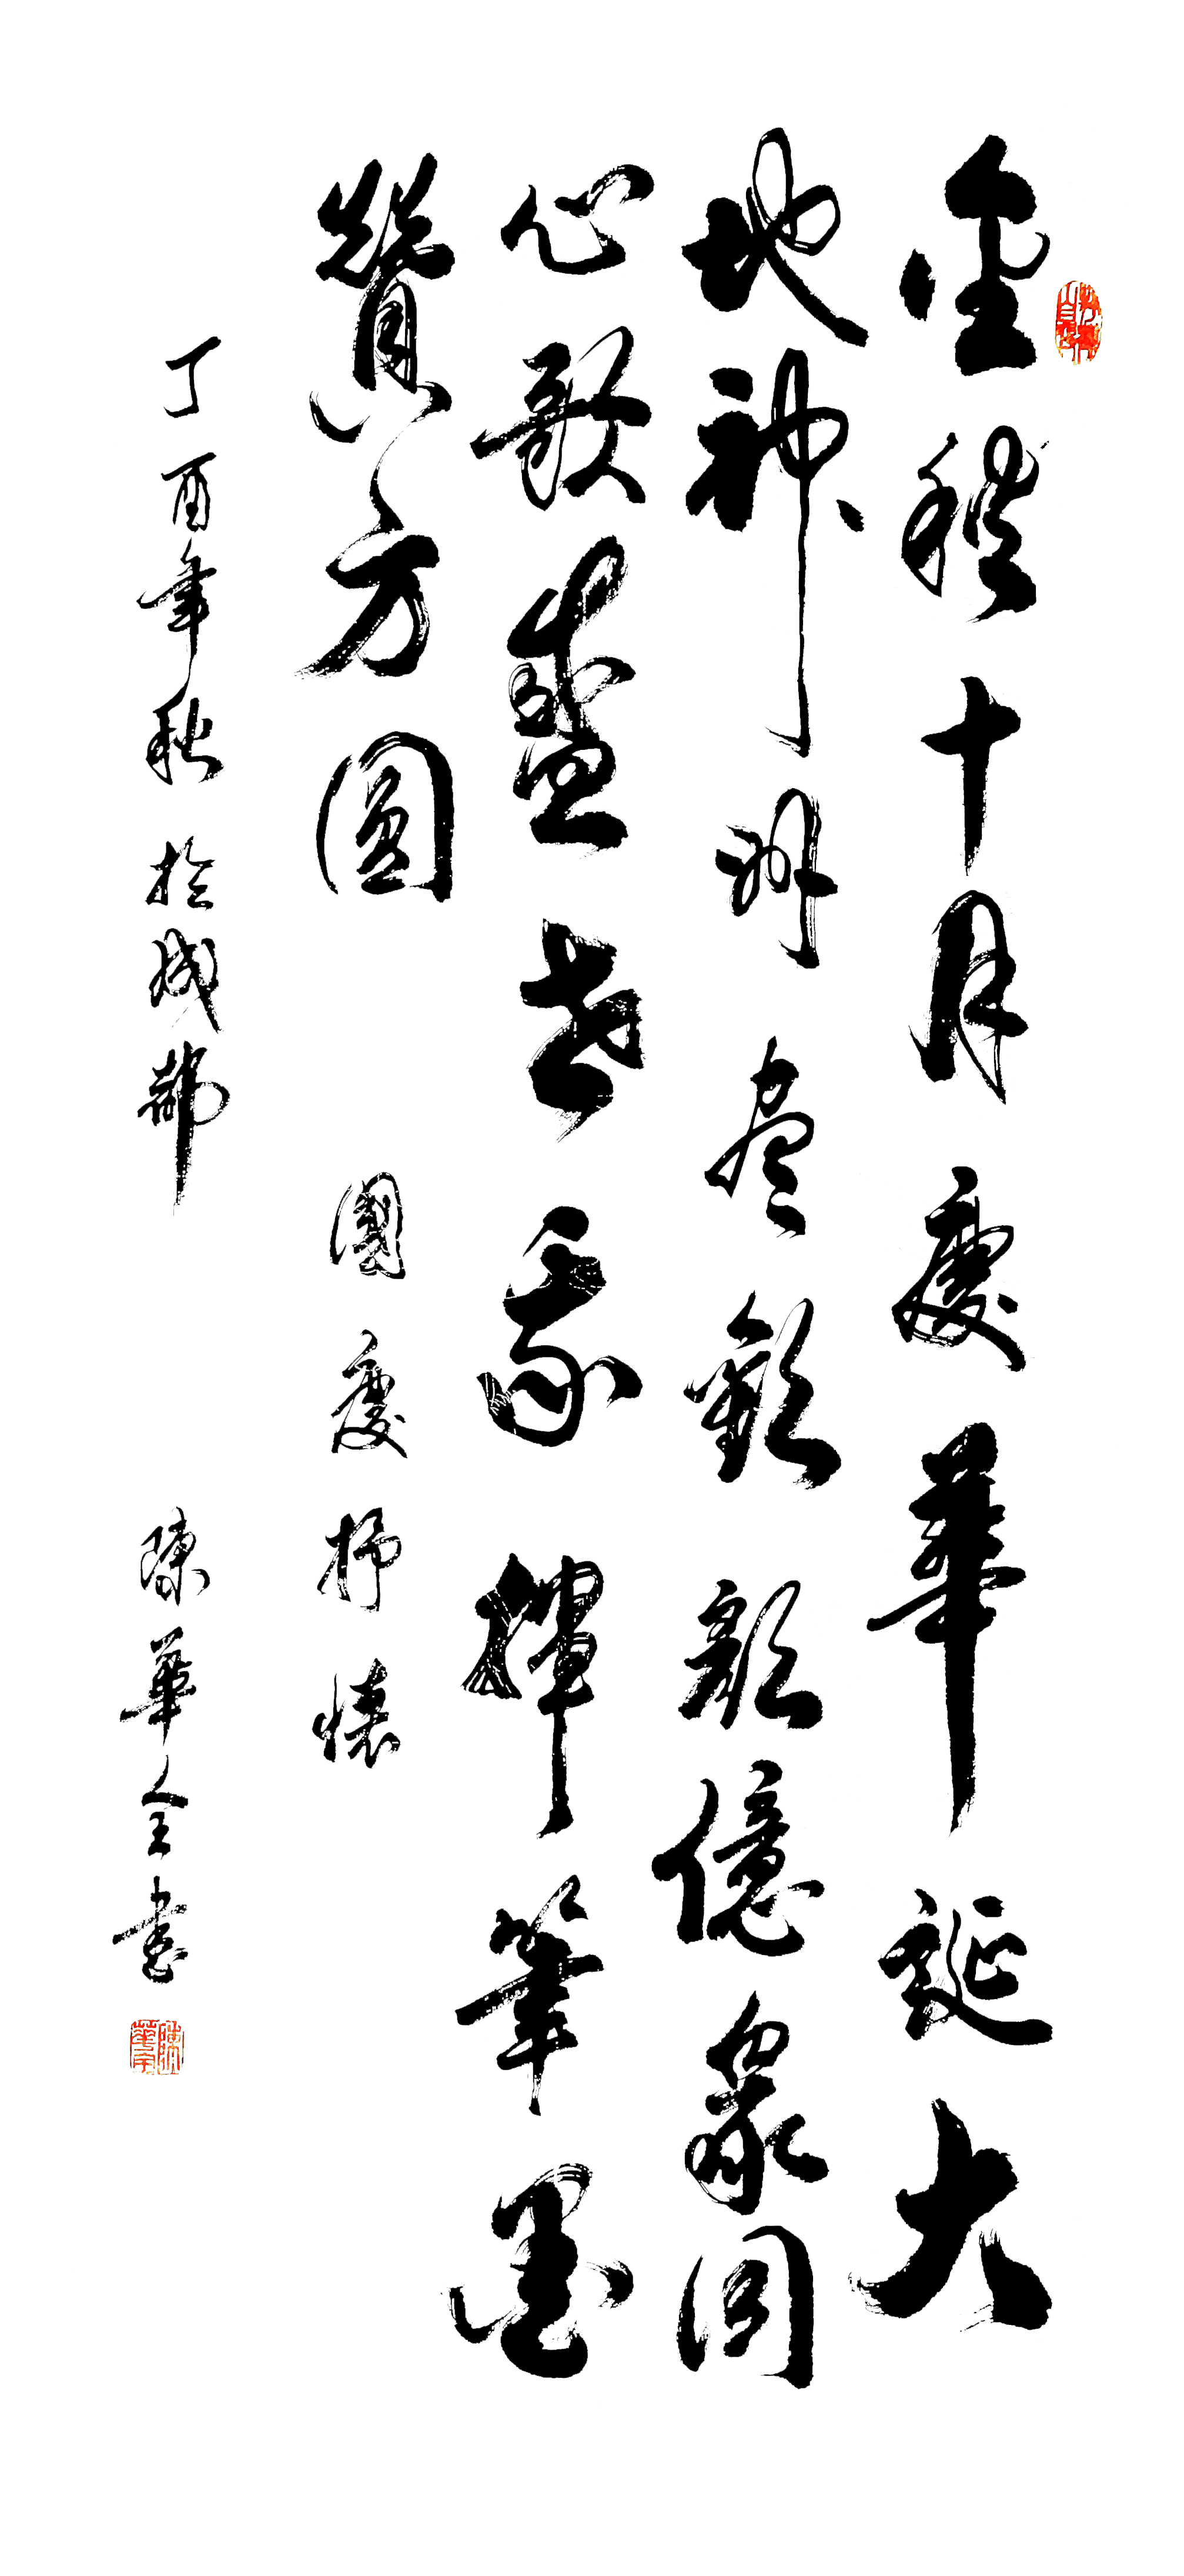 金秋十月慶華誕大
地神州盡歡顏億眾同
心歌盛世我揮筆墨
贊方圓 國慶抒懷
丁酉年秋於成都 陳華全書
陳華全